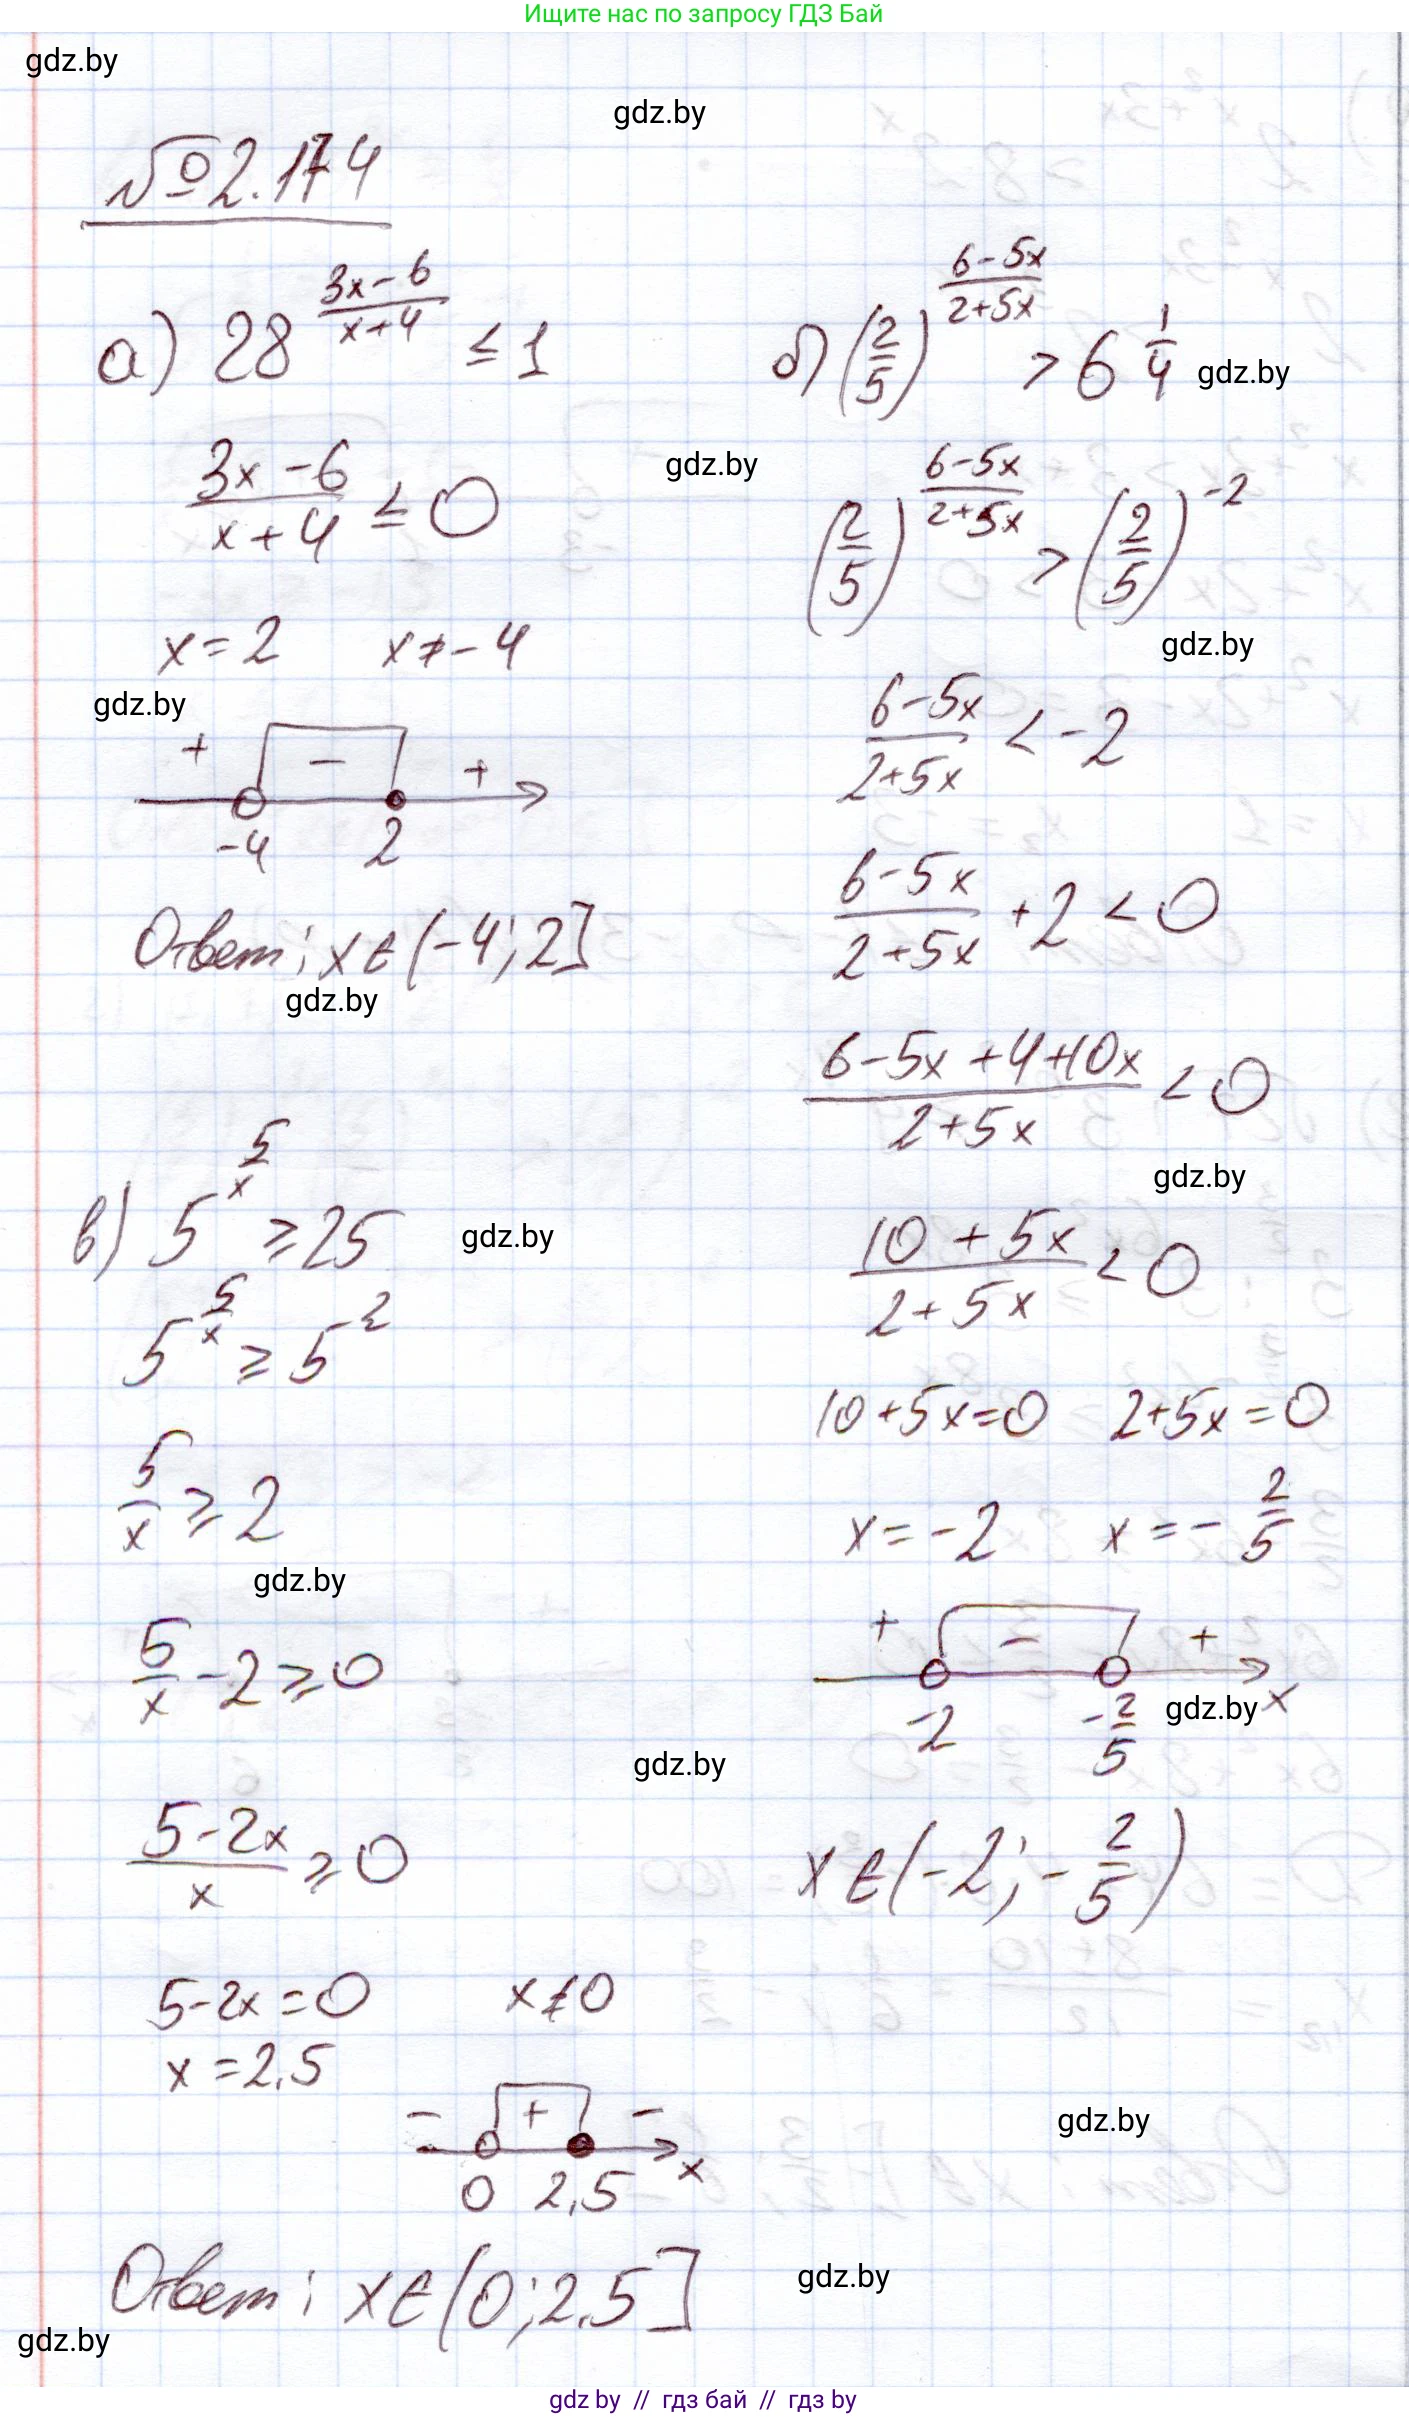 Ищите нас по запросу ГДЗ Бай
gdz.by
gdz.by
№2.174
а) 28^((3x-6)/(x+4)) ≤ 1
(3x-6)/(x+4) ≤ 0
x=2 x≠-4
gdz.by
+ - +
-4 2
Ответ: x∈(-4;2]
gdz.by
б) (2/5)^((6-5x)/(2+5x)) > 6 1/4
gdz.by
gdz.by
(2/5)^((6-5x)/(2+5x)) > (2/5)^(-2)
gdz.by
(6-5x)/(2+5x) < -2
(6-5x)/(2+5x) +2 < 0
(6-5x+4+10x)/(2+5x) < 0
gdz.by
(10+5x)/(2+5x) < 0
10+5x=0 2+5x=0
x=-2 x=-2/5
+ - +
-2 -2/5 x
gdz.by
x∈(-2;-2/5)
в) 5^(5/x) ≥ 25
gdz.by
5^(5/x) ≥ 5^2
5/x ≥ 2
gdz.by
5/x -2 ≥ 0
gdz.by
(5-2x)/x ≥ 0
5-2x=0 x≠0
x=2,5
- + -
0 2,5 x
gdz.by
Ответ: x∈(0;2,5]
gdz.by
gdz.by
gdz by // гдз бай // гдз by